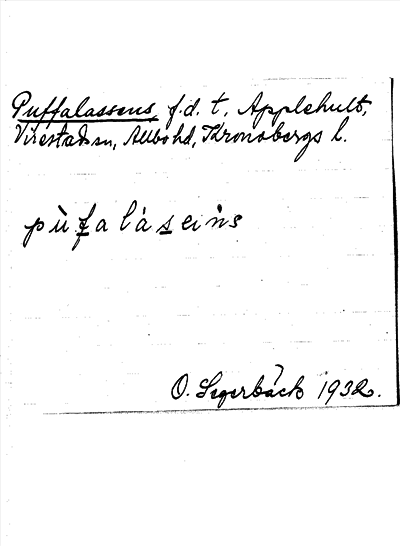 Puffalassens, f.d. t. Applehult,
Virestads sn, Allbo hd, Kronobergs l.
pùfalàseins
O. Segerbäck 1932.